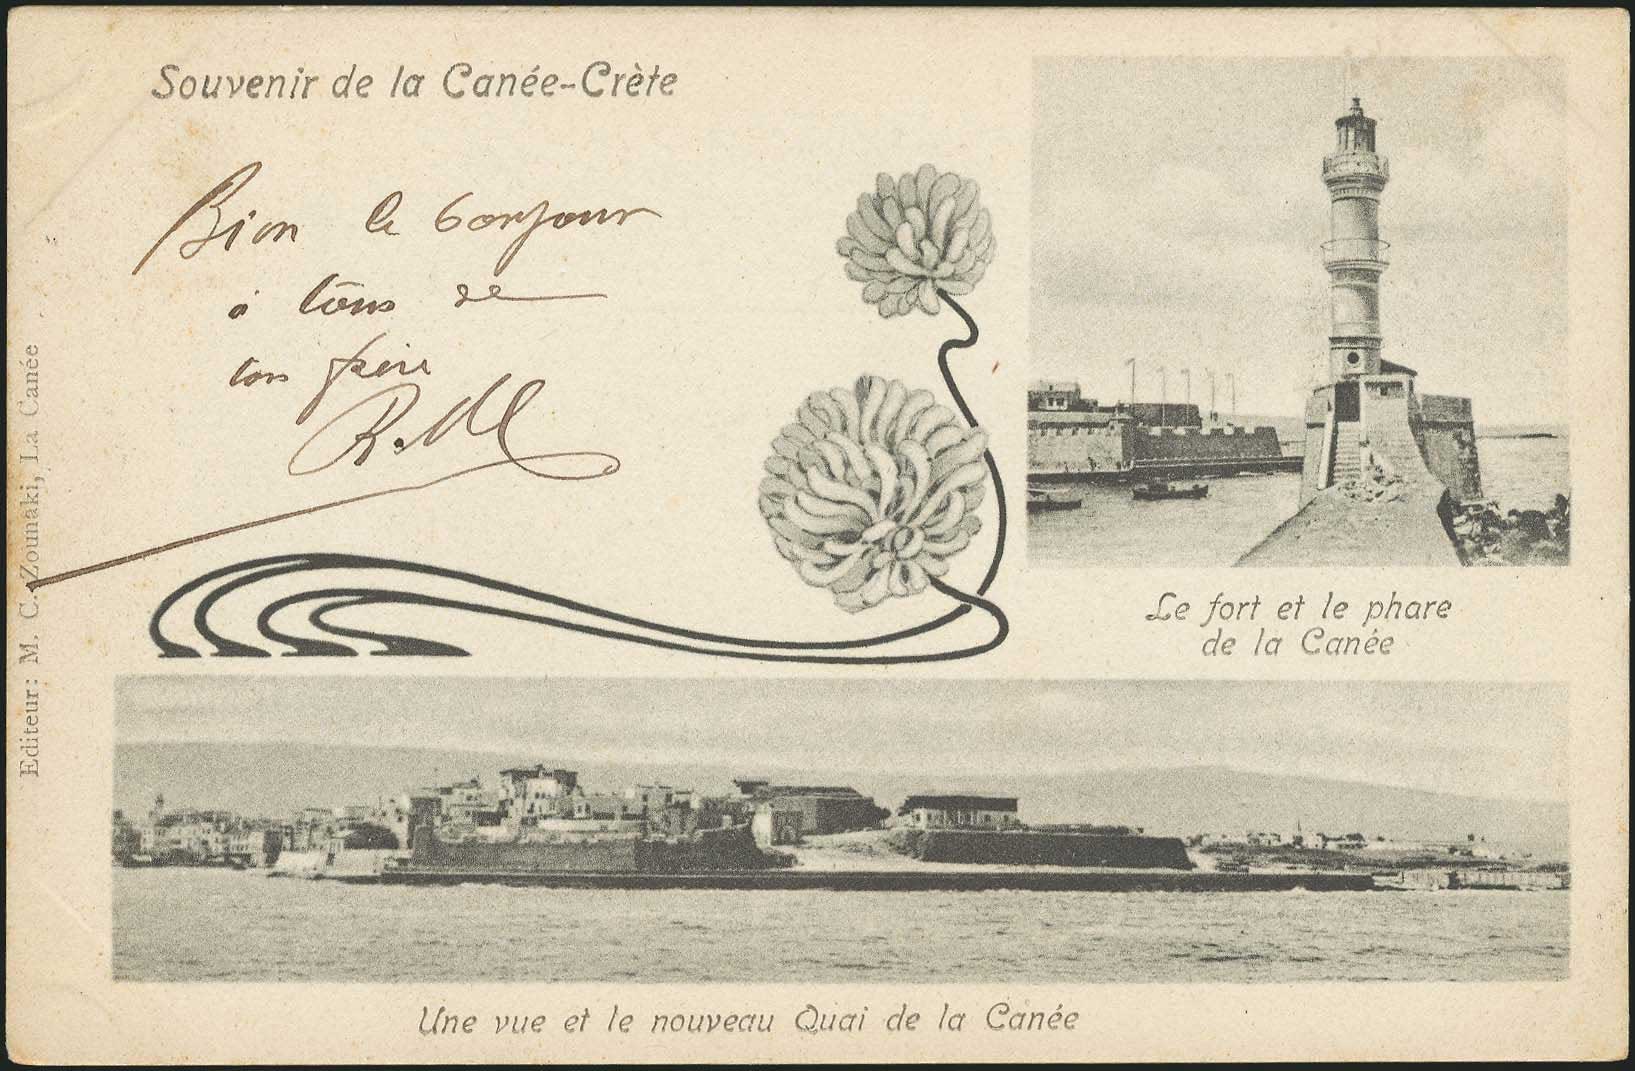 Souvenir de la Canée-Crète
Bien le bonjour
à tous de
ton frère
Le fort et le phare
de la Canée
Editeur: M. C. Zounaki, La Canée
Une vue et le nouveau Quai de la Canée